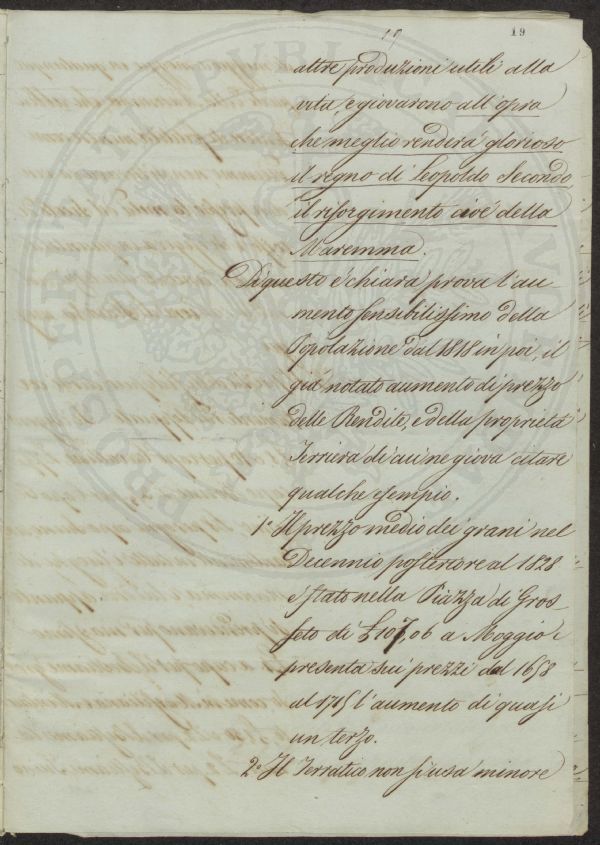 19 19
altre produzioni utili alla
vita, e giovarono all'opra
che meglio renderà glorioso
il regno di Leopoldo Secondo
il risorgimento cioè della
Maremma.
Di questo è chiara prova l'au-
mento sensibilissimo della
Popolazione dal 1818 in poi, il
già notato aumento di prezzo
delle Rendite, e della proprietà
Terriera di cui ne giova citare
qualche esempio.
1° Il prezzo medio dei grani nel
Decennio posteriore al 1828
è stato nella Piazza di Gros-
seto di £ 107,06 a Moggio:
presenta sui prezzi dal 1658
al 1715 l'aumento di quasi
un terzo.
2° Il Terratico non si usa minore